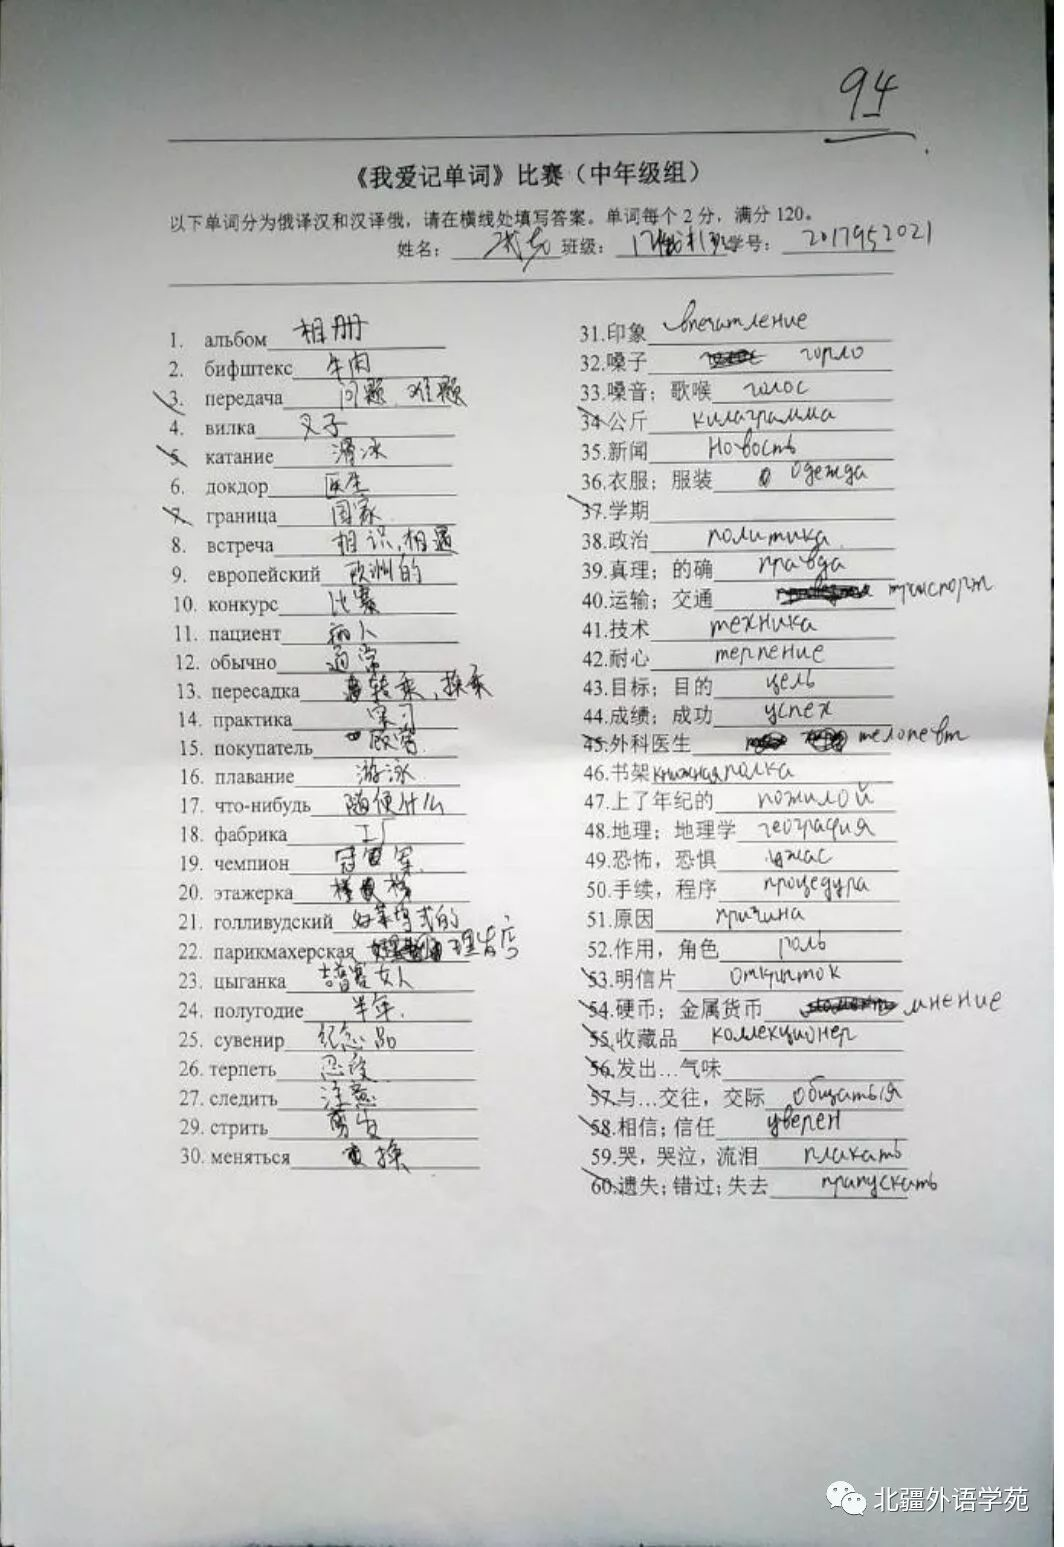 94
《我爱记单词》比赛（中年级组）
以下单词分为俄译汉和汉译俄，请在横线处填写答案。单词每个2分，满分120。
姓名： 班级： 学号： 2017952021
1. альбом 相册
2. бифштекс 牛肉
3. передача 问题、难题
4. вилка 叉子
5. катание 滑冰
6. докдор 医生
7. граница 国家
8. встреча 相识,相遇
9. европейский 欧洲的
10. конкурс 比赛
11. пациент 病人
12. обычно 通常
13. пересадка 转乘、换乘
14. практика 实习
15. покупатель 顾客
16. плавание 游泳
17. что-нибудь 随便什么
18. фабрика 工厂
19. чемпион 冠军
20. этажерка
21. голливудский 好莱坞式的
22. парикмахерская 理发店
23. цыганка 吉普赛女人
24. полугодие 半年.
25. сувенир 纪念品
26. терпеть 忍受
27. следить 注意
29. стрить 剪发
30. меняться 交换
31.印象 впечатление
32.嗓子 горло
33.嗓音；歌喉 голос
34.公斤 килаграмма
35.新闻 Новость
36.衣服；服装 одежда
37.学期
38.政治 политика
39.真理；的确 правда
40.运输；交通 транспорт
41.技术 техника
42.耐心 терпение
43.目标；目的 цель
44.成绩；成功 успех
45.外科医生 телопевт
46.书架 книжная полка
47.上了年纪的 пожилой
48.地理；地理学 география
49.恐怖，恐惧 ужас
50.手续，程序 процедура
51.原因 причина
52.作用，角色 роль
53.明信片 открыток
54.硬币；金属货币 мнение
55.收藏品 коллекционер
56.发出…气味
57.与…交往，交际 общатыя
58.相信；信任 уверен
59.哭，哭泣，流泪 плакать
60.遗失；错过；失去 прапускать
北疆外语学苑